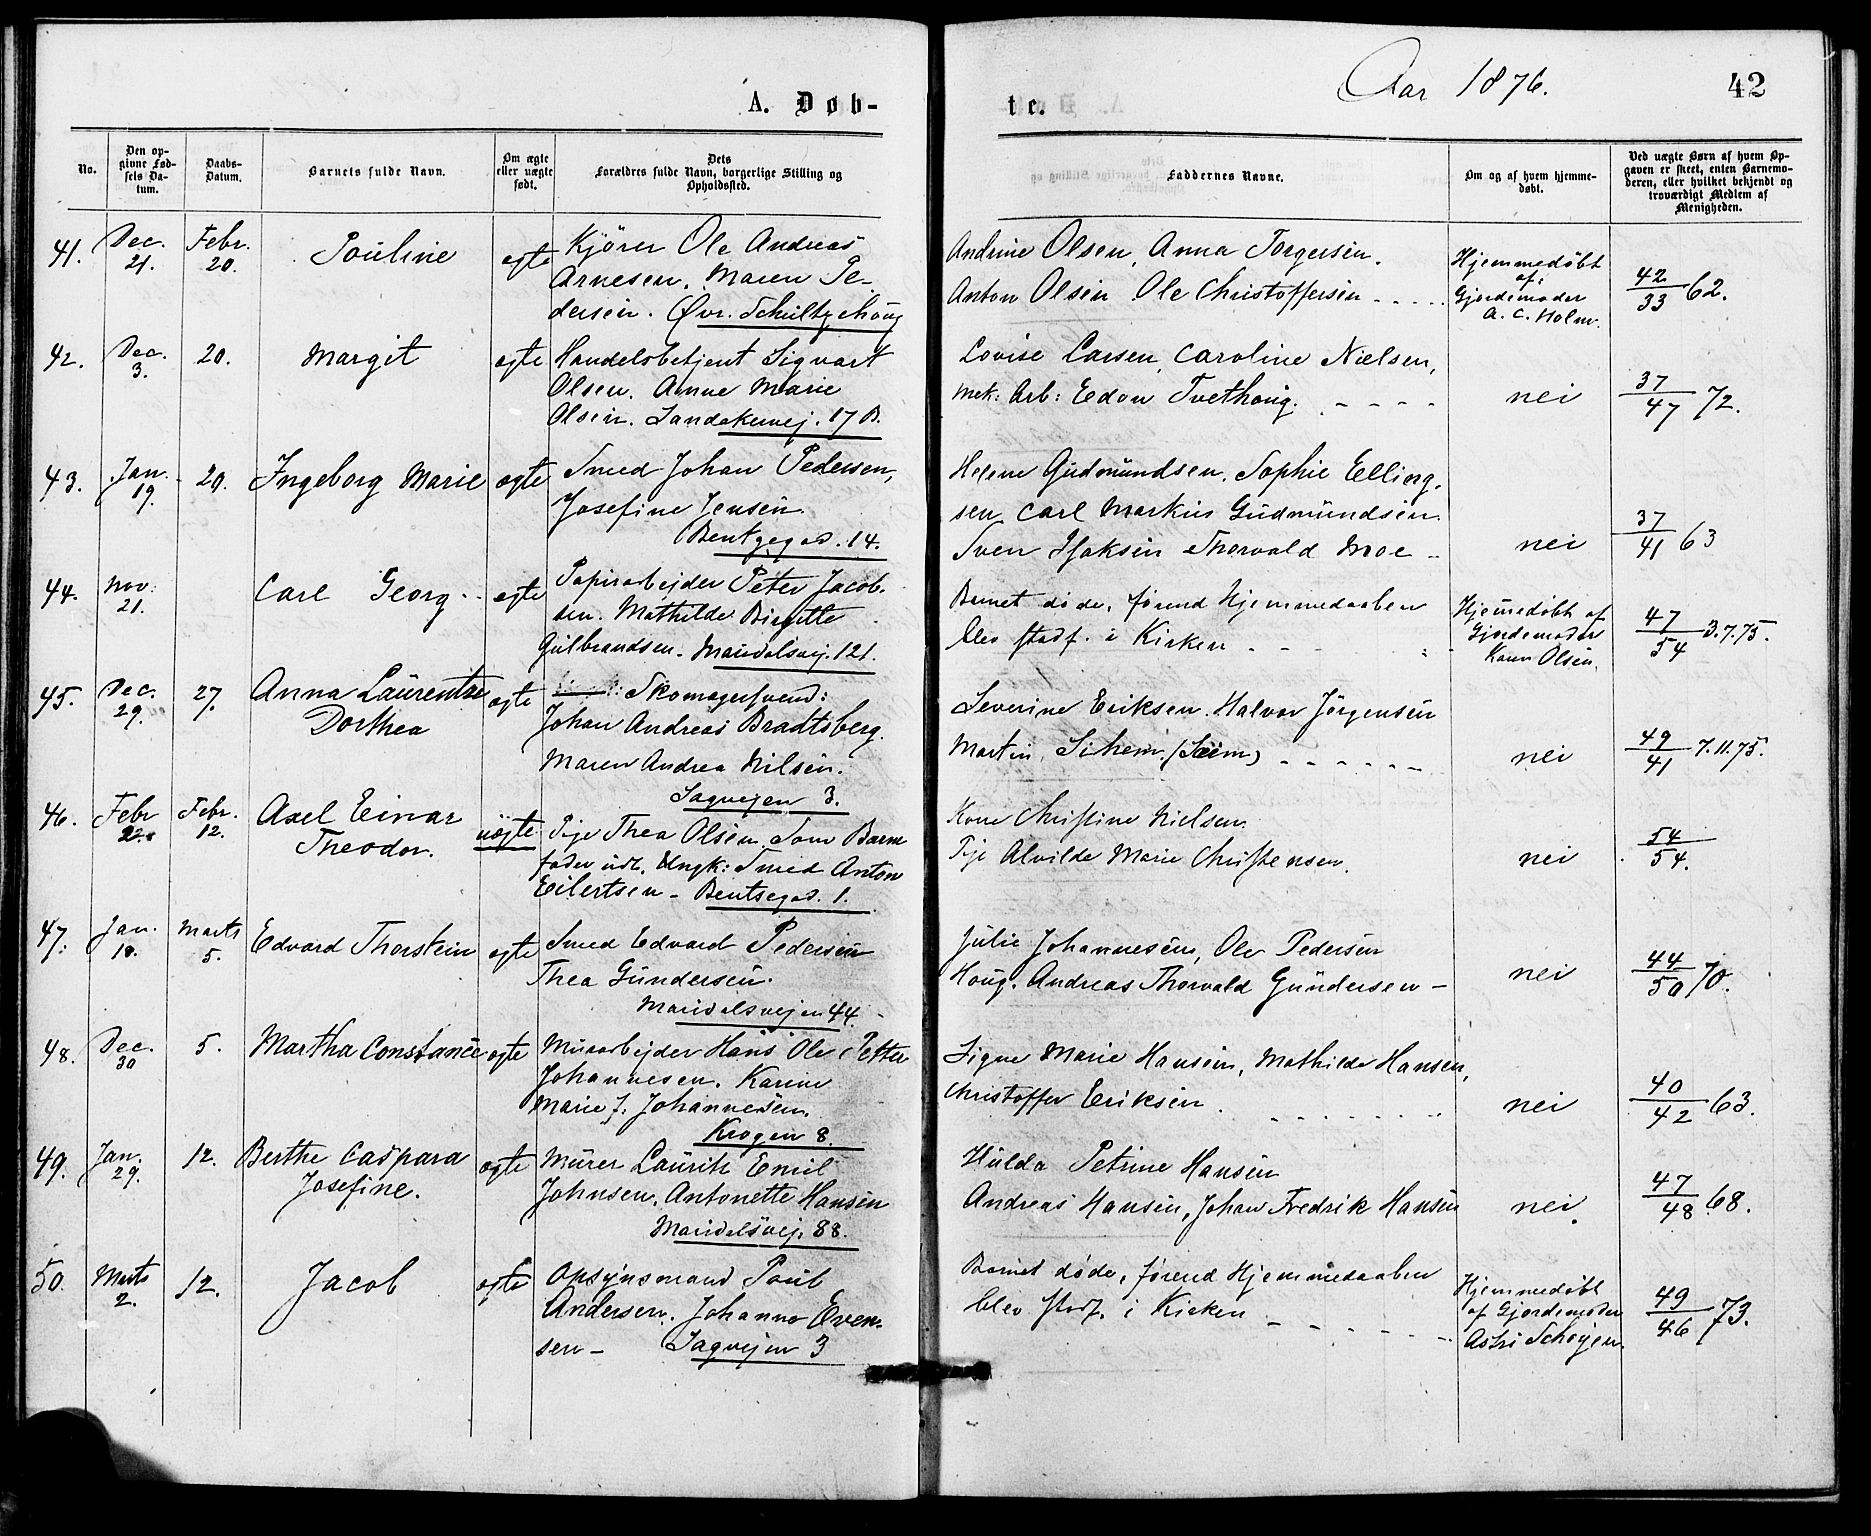 A. Døb-
te.
Aar 1876.
42
No.
Den op-
givne Fød-
sels Da-
tum.
Daabs-
Datum.
Barnets fulde Navn.
Om ægte
eller uægte
født.
Dets
Forældres fulde Navn, borgerlige Stilling og
Opholdssted.
Faddernes Navne.
Om og af hvem hjemme-
døbt.
Ved uægte Børn af hvem Op-
gaven er skeet, enten Barnemo-
deren, eller hvilket bekjendt og
troværdigt Medlem af
Menigheden.
41. Dec. 21. Febr. 20. Pouline ægte
Kjører Ole Andreas
Arnesen. Maren Pe-
dersen. Øvr. Schultzehoug
Andrine Olsen, Anna Torgersen.
Anton Olsen Ole Christoffersen
Hjemmedøbt
af
Gjordemoder
A. C. Holm.
42/33 62.
42. Dec. 3. 20. Margit ægte
Handelsbetjent Sigvart
Olsen. Anne Marie
Olsen. Sandakervej. 17 B.
Lovise Larsen, Caroline Nielsen,
Mek: Arb: Edon Tvethoug.
nei
37/47 72.
43. Jan. 19. 20. Ingeborg Marie ægte
Smed Johan Pedersen,
Josefine Jensen.
Bentzegad. 14.
Helene Gudmundsen. Sophie Elling-
sen Carl Markus Gudmundsen.
Sven Isaksen Thorvald Moe
nei
37/41 63
44. Nov. 21. Carl Georg ægte
Papirarbejder Peter Jacob-
sen. Mathilde Birgitte
Gulbrandsen. Maridalsvej. 121.
Barnet døde, førend Hjemmedaaben
blev stadf. i Kirken
Hjemmedøbt af
Gjordemoder
Karen Olsen.
47/54 3.7.75.
45. Dec. 29. 27. Anna Laurentze ægte
Dorthea
Skomagersvend:
Johan Andreas Bradtsberg.
Maren Andrea Nilsen.
Sagvejen 3.
Severine Eriksen. Halvor Jørgensen
Martin Siheim (Seim)
nei
49/41 7.11.75.
46. Febr 22. Febr. 12. Axel Einar uægte
Theodor.
Pige Thea Olsen. Som Barne
fader udl. Ungk: Smed Anton
Eilertsen - Bentsegad. 1.
Kone Christine Nielsen
Pige Alvilde Marie Christensen.
nei
54/54.
47. Jan. 18. Marts 5. Edvard Thorstein ægte
Smed Edvard Pedersen
Thea Gundersen.
Maridalsvejen 44.
Julie Johannesen, Ole Pedersen
Houg. Andreas Thorvald Gundersen
nei
44/50 70.
48. Dec. 30 5. Martha Constance ægte
Murarbejder Hans Ole Petter
Johannesen. Karine
Marie J. Johannesen.
Krogen 8.
Signe Marie Hansen, Mathilde Hansen,
Christoffer Eriksen
nei
40/42 63.
49. Jan. 29. 12. Berthe Caspara ægte
Josefine.
Murer Lauritz Emil
Johnsen. Antonette Hansen
Maridalsvej. 88.
Hulda Petrine Hansen
Andreas Hansen, Johan Fredrik Hansen
nei.
47/48 68.
50. Marts 2. 12. Jacob ægte
Opsynsmand Poul
Andersen. Johanne Even-
sen - Sagvejen 3
Barnet døde, førend Hjemmedaaben
blev stadf. i Kirken
Hjemmedøbt
af Gjordemoder
Astri Schøyen.
49/46 73.